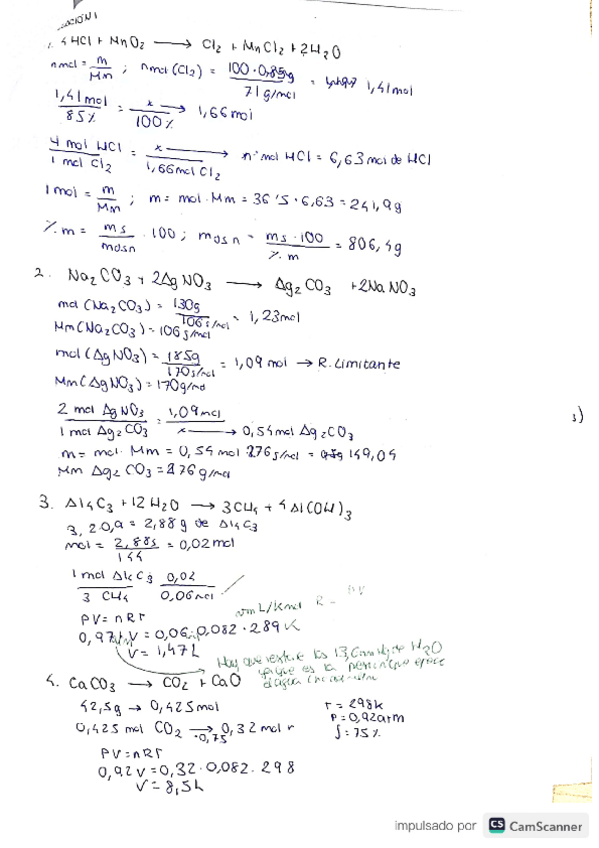 4HCl + MnO₂ ⟶ Cl₂ + MnCl₂ + 2H₂O
nmol = m/Mm ; nmol (Cl₂) = 100·0,85g / 71g/mol = 1,41mol
1,41mol/85% = x/100% ⟶ 1,66mol
4 mol HCl/1 mol Cl₂ = x/1,66mol Cl₂ ⟶ nº mol HCl = 6,63mol de HCl
1mol = m/Mm ; m = mol · Mm = 36'5 · 6,63 = 241,9g
%m = ms/mdsn · 100 ; mdsn = ms·100/%m = 806,4g
2. Na₂CO₃ + 2AgNO₃ ⟶ Ag₂CO₃ + 2NaNO₃
mol (Na₂CO₃) = 130g/106g/mol = 1,23mol
Mm(Na₂CO₃) = 106g/mol
mol (AgNO₃) = 185g/170g/mol = 1,09 mol → R. Limitante
Mm(AgNO₃) = 170g/mol
2 mol AgNO₃/1mol Ag₂CO₃ = 1,09mol/x ⟶ 0,54mol Ag₂CO₃
m = mol · Mm = 0,54 mol 276g/mol = 149,04
Mm Ag₂CO₃ = 276g/mol
3. Al₄C₃ + 12H₂O ⟶ 3CH₄ + 4Al(OH)₃
3,2·0,9 = 2,88g de Al₄C₃
mol = 2,88g/144 = 0,02mol
1mol Al₄C₃/3 CH₄ 0,02/0,06mol
PV = nRT
0,97 V = 0,06·0,082·289K
V = 1,47L
Hay que restarle los H₂O
ya que es la
4. CaCO₃ ⟶ CO₂ + CaO
42,5g → 0,425mol
T = 298K
0,425 mol CO₂ ⟶ ·0,75 0,32 mol r
P = 0,92atm
ρ: 75%
PV = nRT
0,92V = 0,32·0,082·298
V = 8,5L
impulsado por CS CamScanner